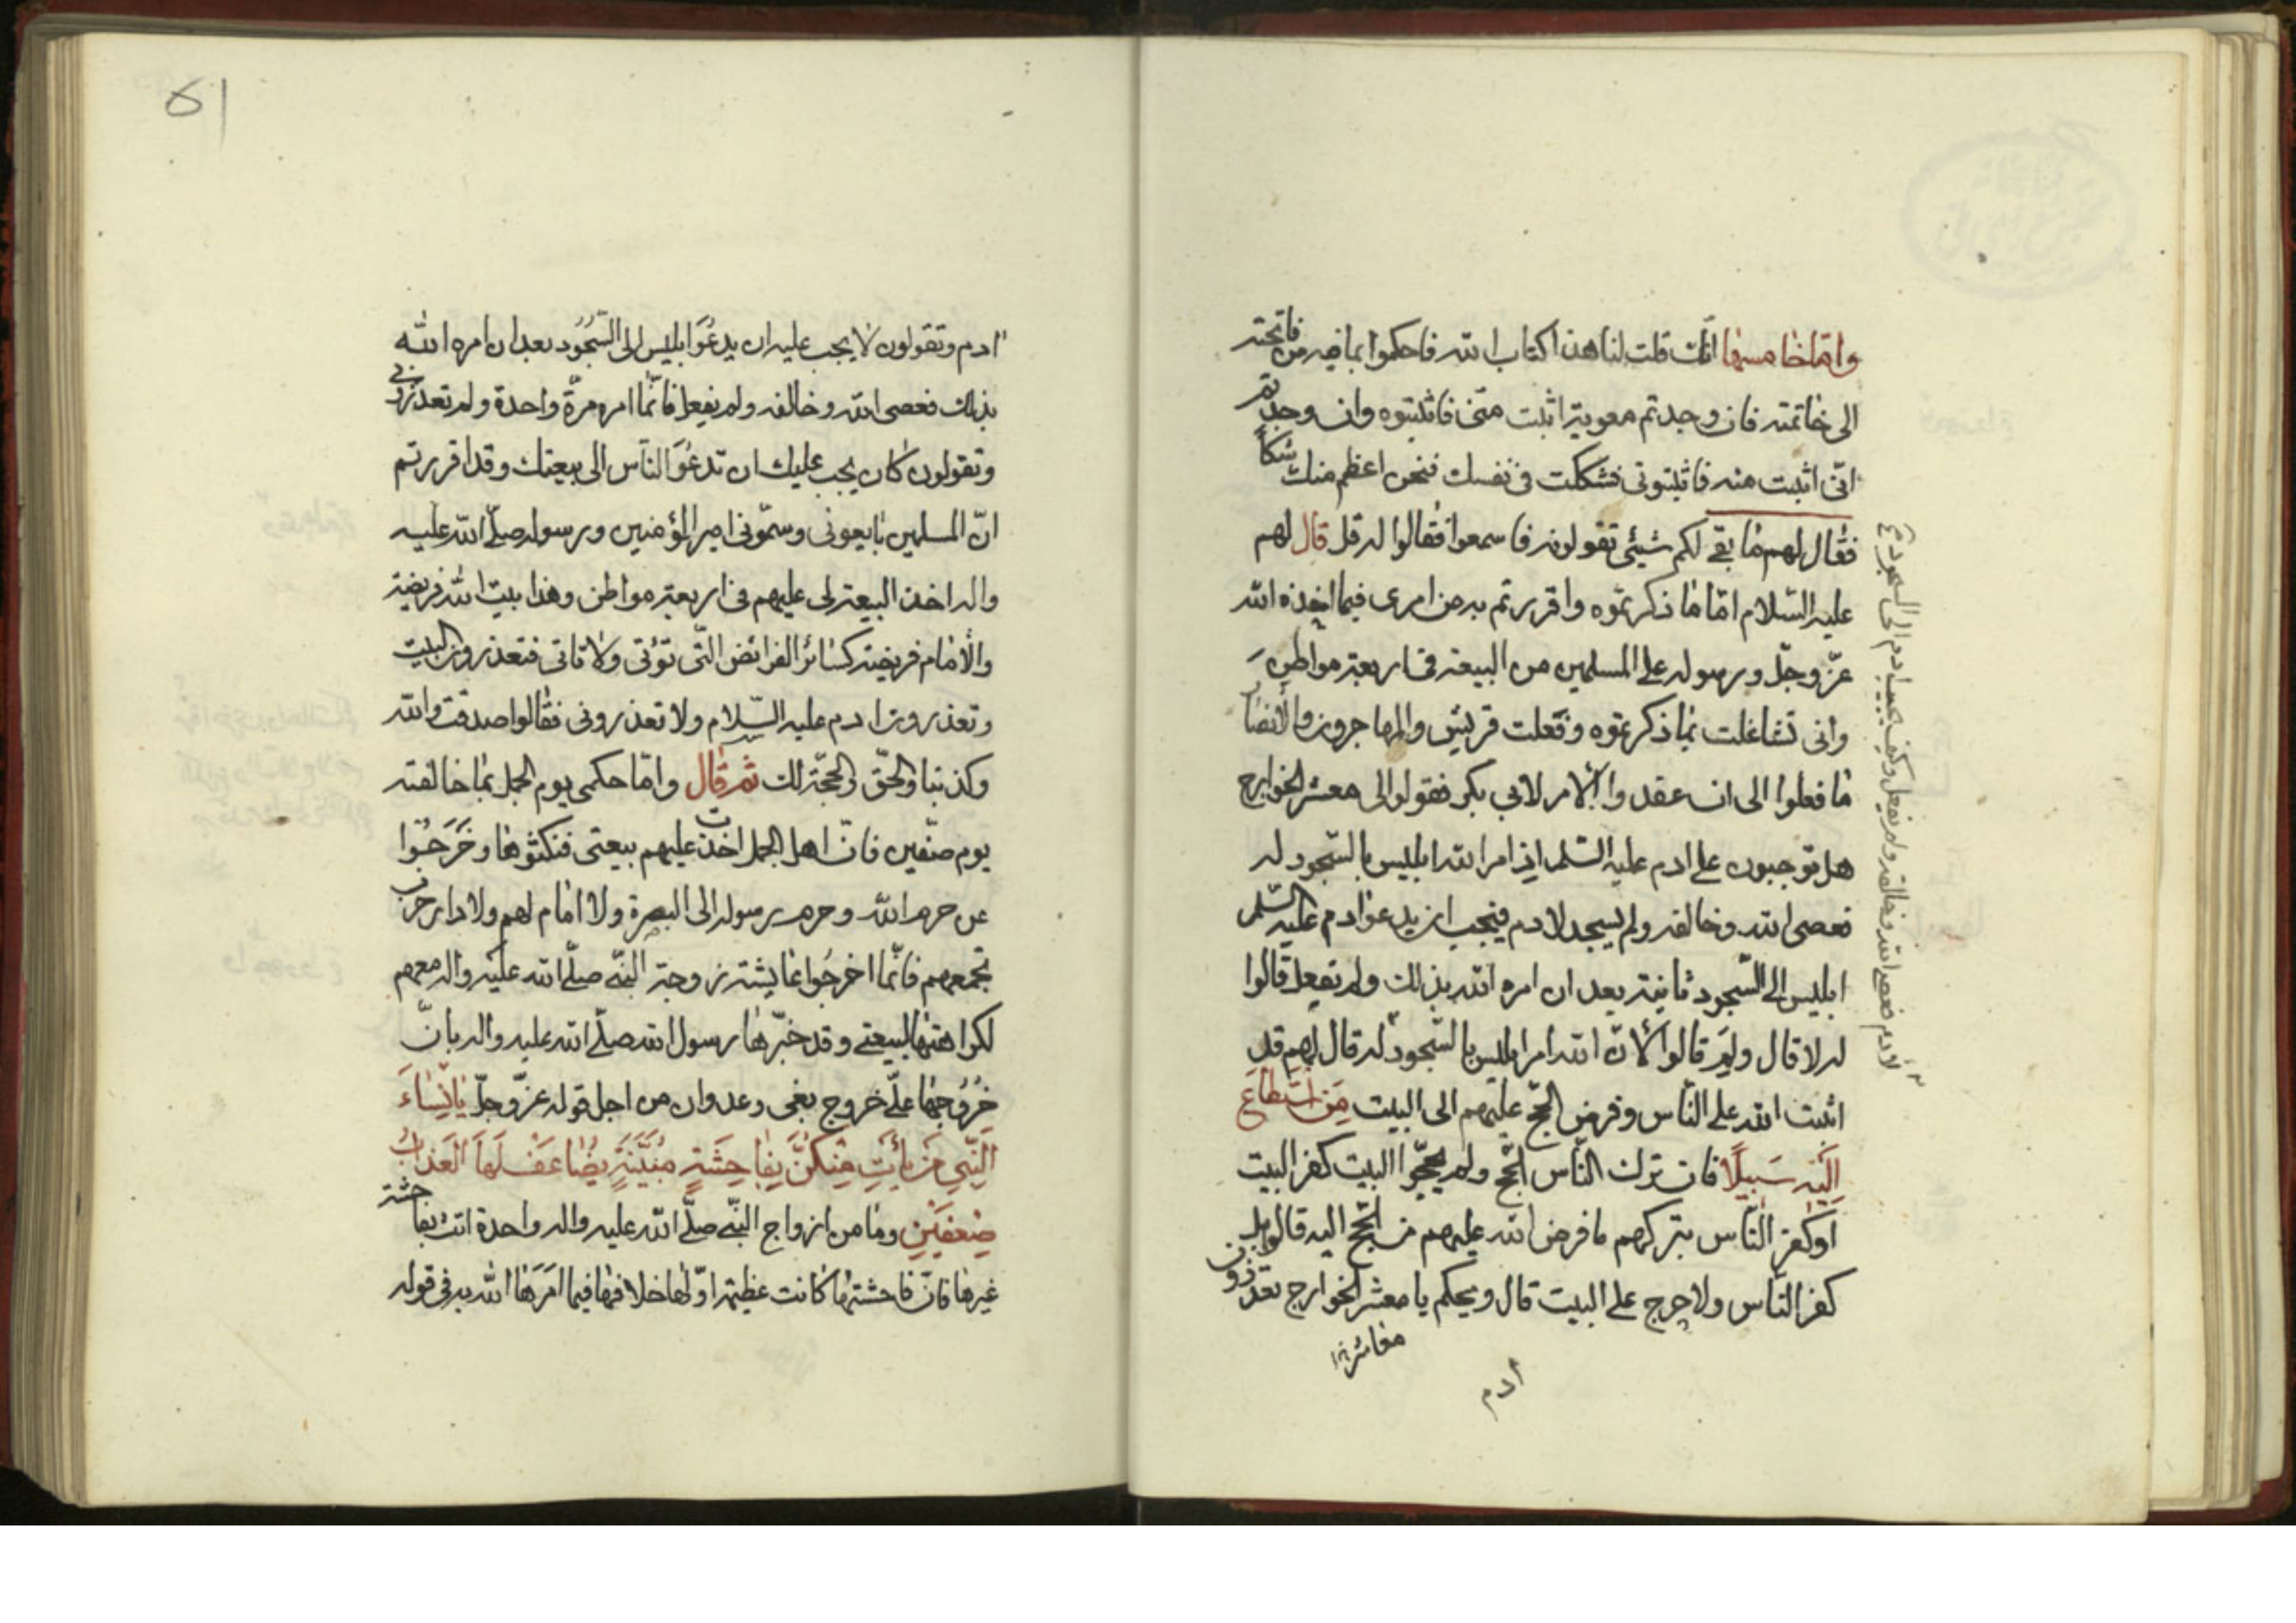 واما خامسها انك قلت لنا هذا كتاب الله فاحكموا بما فيه من فاتحته
الى خاتمته فان وجدتم معوية اثبت منى فاثبتوه وان وجدتم
انى اثبت منه فاثبتونى فشككت فى نفسك فنحن اعظم منك شكا
فقال لهم ما بقى لكم شيئى تقولونه فاسمعوا فقالوا له قل قال لهم
عليه السلام اما ما ذكرتموه واقررتم به من امرى فيما اخذه الله
عز وجل ورسوله على المسلمين من البيعة فى اربعة مواطن
وانى تشاغلت بما ذكرتموه وفعلت قريش والمهاجرون والانصار
ما فعلوا الى ان عقدوا الامر لابى بكر فقولوا لى معشر الخوارج
هل توجبون على ادم عليه السلم اذ امر الله ابليس بالسجود له
فعصى الله وخالفه ولم يسجد لادم فيجب ان يدعوا ادم عليه السلم
ابليس الى السجود ثانية بعد ان امره الله بذلك ولم يفعل قالوا
له لا قال ولم قالوا لان الله امر ابليس بالسجود له قال لهم قد
اثبت الله على الناس وفرض الحج عليهم الى البيت مَنِ اسْتَطَاعَ
اِلَيْهِ سَبِيلًا فان ترك الناس الحج ولم يحجوا البيت كفر البيت
او كفر الناس بتركهم ما فرض الله عليهم من الحج اليه قالوا بل
كفر الناس ولا حرج على البيت قال ويحكم يا معشر الخوارج تعذرون
ادم
لادم فعصى الله وخالفه ولم يفعل وكيف يجب ادم الى السجود
51
ادم وتقولون لا يجب عليه ان يدعوا ابليس الى السجود بعد ان امره الله
بذلك فعصى الله وخالفه ولم يفعل فانما امره مرة واحدة ولم تعذرونى
وتقولون كان يجب عليك ان تدعوا الناس الى بيعتك وقد اقررتم
ان المسلمين بايعونى وسمونى امير المؤمنين ورسوله صلى الله عليه
واله اخذ البيعة لى عليهم فى اربعة مواطن وهذا بيت الله فريضة
والامام فريضة كسائر الفرائض التى تؤتى ولا تاتى فتعذرون البيت
وتعذرون ادم عليه السلام ولا تعذرونى فقالوا صدقت والله
وكذبنا والحق والحجة لك ثم قال واما حكمى يوم الجمل بما خالفته
يوم صفين فان اهل الجمل اخذت عليهم بيعتى فنكثوها وخرجوا
عن حرم الله وحرم رسوله الى البصرة ولا امام لهم ولا دار حرب
تجمعهم فانما اخرجوا عايشة زوجة النبى صلى الله عليه واله معهم
لكراهتها لبيعتى وقد خبرها رسول الله صلى الله عليه واله بان
خروجها على خروج بغى وعدوان من اجل قوله عز وجل يَا نِسَاءَ
النَّبِيِّ مَنْ يَأْتِ مِنْكُنَّ بِفَاحِشَةٍ مُبَيِّنَةٍ يُضَاعَفْ لَهَا الْعَذَابُ
ضِعْفَيْنِ وما من ازواج النبى صلى الله عليه واله واحدة اتت بفاحشة
غيرها فان فاحشتها كانت عظيمة اولها خلافها فيما امرها الله به فى قوله